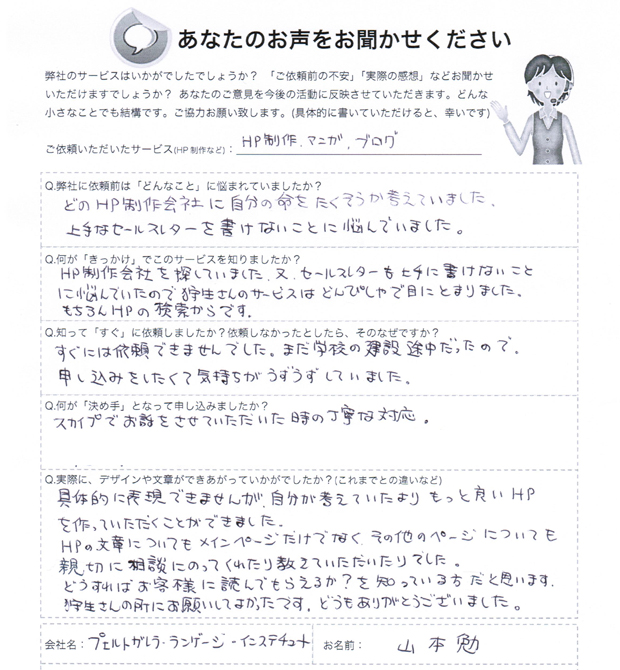 あなたのお声をお聞かせください
弊社のサービスはいかがでしたでしょうか？ 「ご依頼前の不安」「実際の感想」などお聞かせ
いただけますでしょうか？ あなたのご意見を今後の活動に反映させていただきます。どんな
小さなことでも結構です。ご協力お願い致します。(具体的に書いていただけると、幸いです)
ご依頼いただいたサービス(HP制作など)： HP制作、マンガ、ブログ
Q.弊社に依頼前は「どんなこと」に悩まれていましたか？
どのHP制作会社に自分の命をたくそうか考えていました、
上手なセールスレターを書けないことに悩んでいました。
Q.何が「きっかけ」でこのサービスを知りましたか？
HP制作会社を探していました、又、セールスレターも上手に書けないこと
に悩んでいたので狩生さんのサービスはどんぴしゃで目にとまりました。
もちろんHPの検索からです。
Q.知って「すぐ」に依頼しましたか？依頼しなかったとしたら、そのなぜですか？
すぐには依頼できませんでした。まだ学校の建設途中だったので。
申し込みをしたくて気持ちがうずうずしていました。
Q.何が「決め手」となって申し込みましたか？
スカイプでお話をさせていただいた時の丁寧な対応。
Q.実際に、デザインや文章ができあがっていかがでしたか？(これまでとの違いなど)
具体的に表現できませんが、自分が考えていたよりもっと良いHP
を作っていただくことができました。
HPの文章についてもメインページだけでなく、その他のページについても
親切に相談にのってくれたり教えていただいたりでした。
どうすればお客様に読んでもらえるか？を知っている方だと思います。
狩生さんの所にお願いしてよかったです。どうもありがとうございました。
会社名：プェルトガレラ・ランゲージ・インステチュート お名前： 山本勉